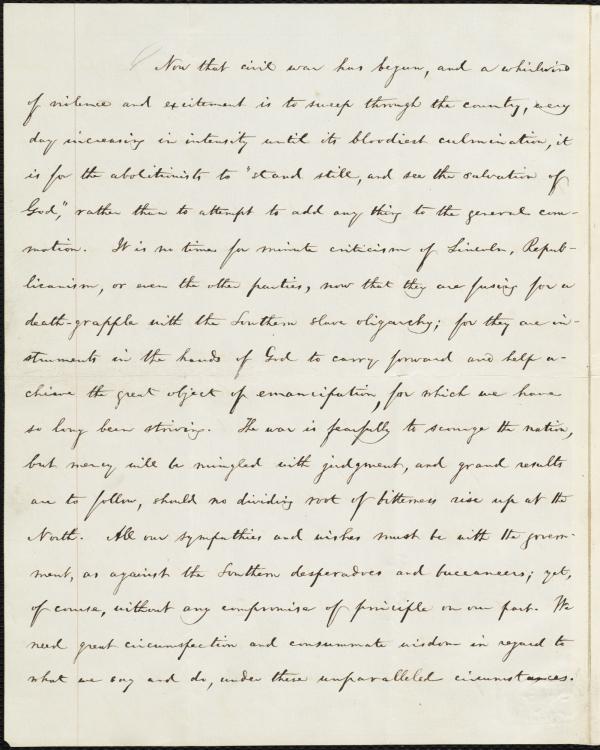 Now that civil war has begun, and a whirlwind
of violence and excitement is to sweep through the country, every
day increasing in intensity until its bloodiest culmination, it
is for the abolitionists to "stand still, and see the salvation of
God," rather than to attempt to add any thing to the general com-
motion. It is no time for minute criticism of Lincoln, Repub-
licanism, or even the other parties, now that they are fusing for a
death-grapple with the Southern slave oligarchy; for they are in-
struments in the hands of God to carry forward and help a-
chieve the great object of emancipation, for which we have
so long been striving. The war is fearfully to scourge the nation,
but mercy will be mingled with judgment, and grand results
are to follow, should no dividing root of bitterness rise up at the
North. All our sympathies and wishes must be with the govern-
ment, as against the Southern desperadoes and buccaneers; yet,
of course, without any compromise of principle on our part. We
need great circumspection and consummate wisdom in regard to
what we say and do, under these unparalleled circumstances.